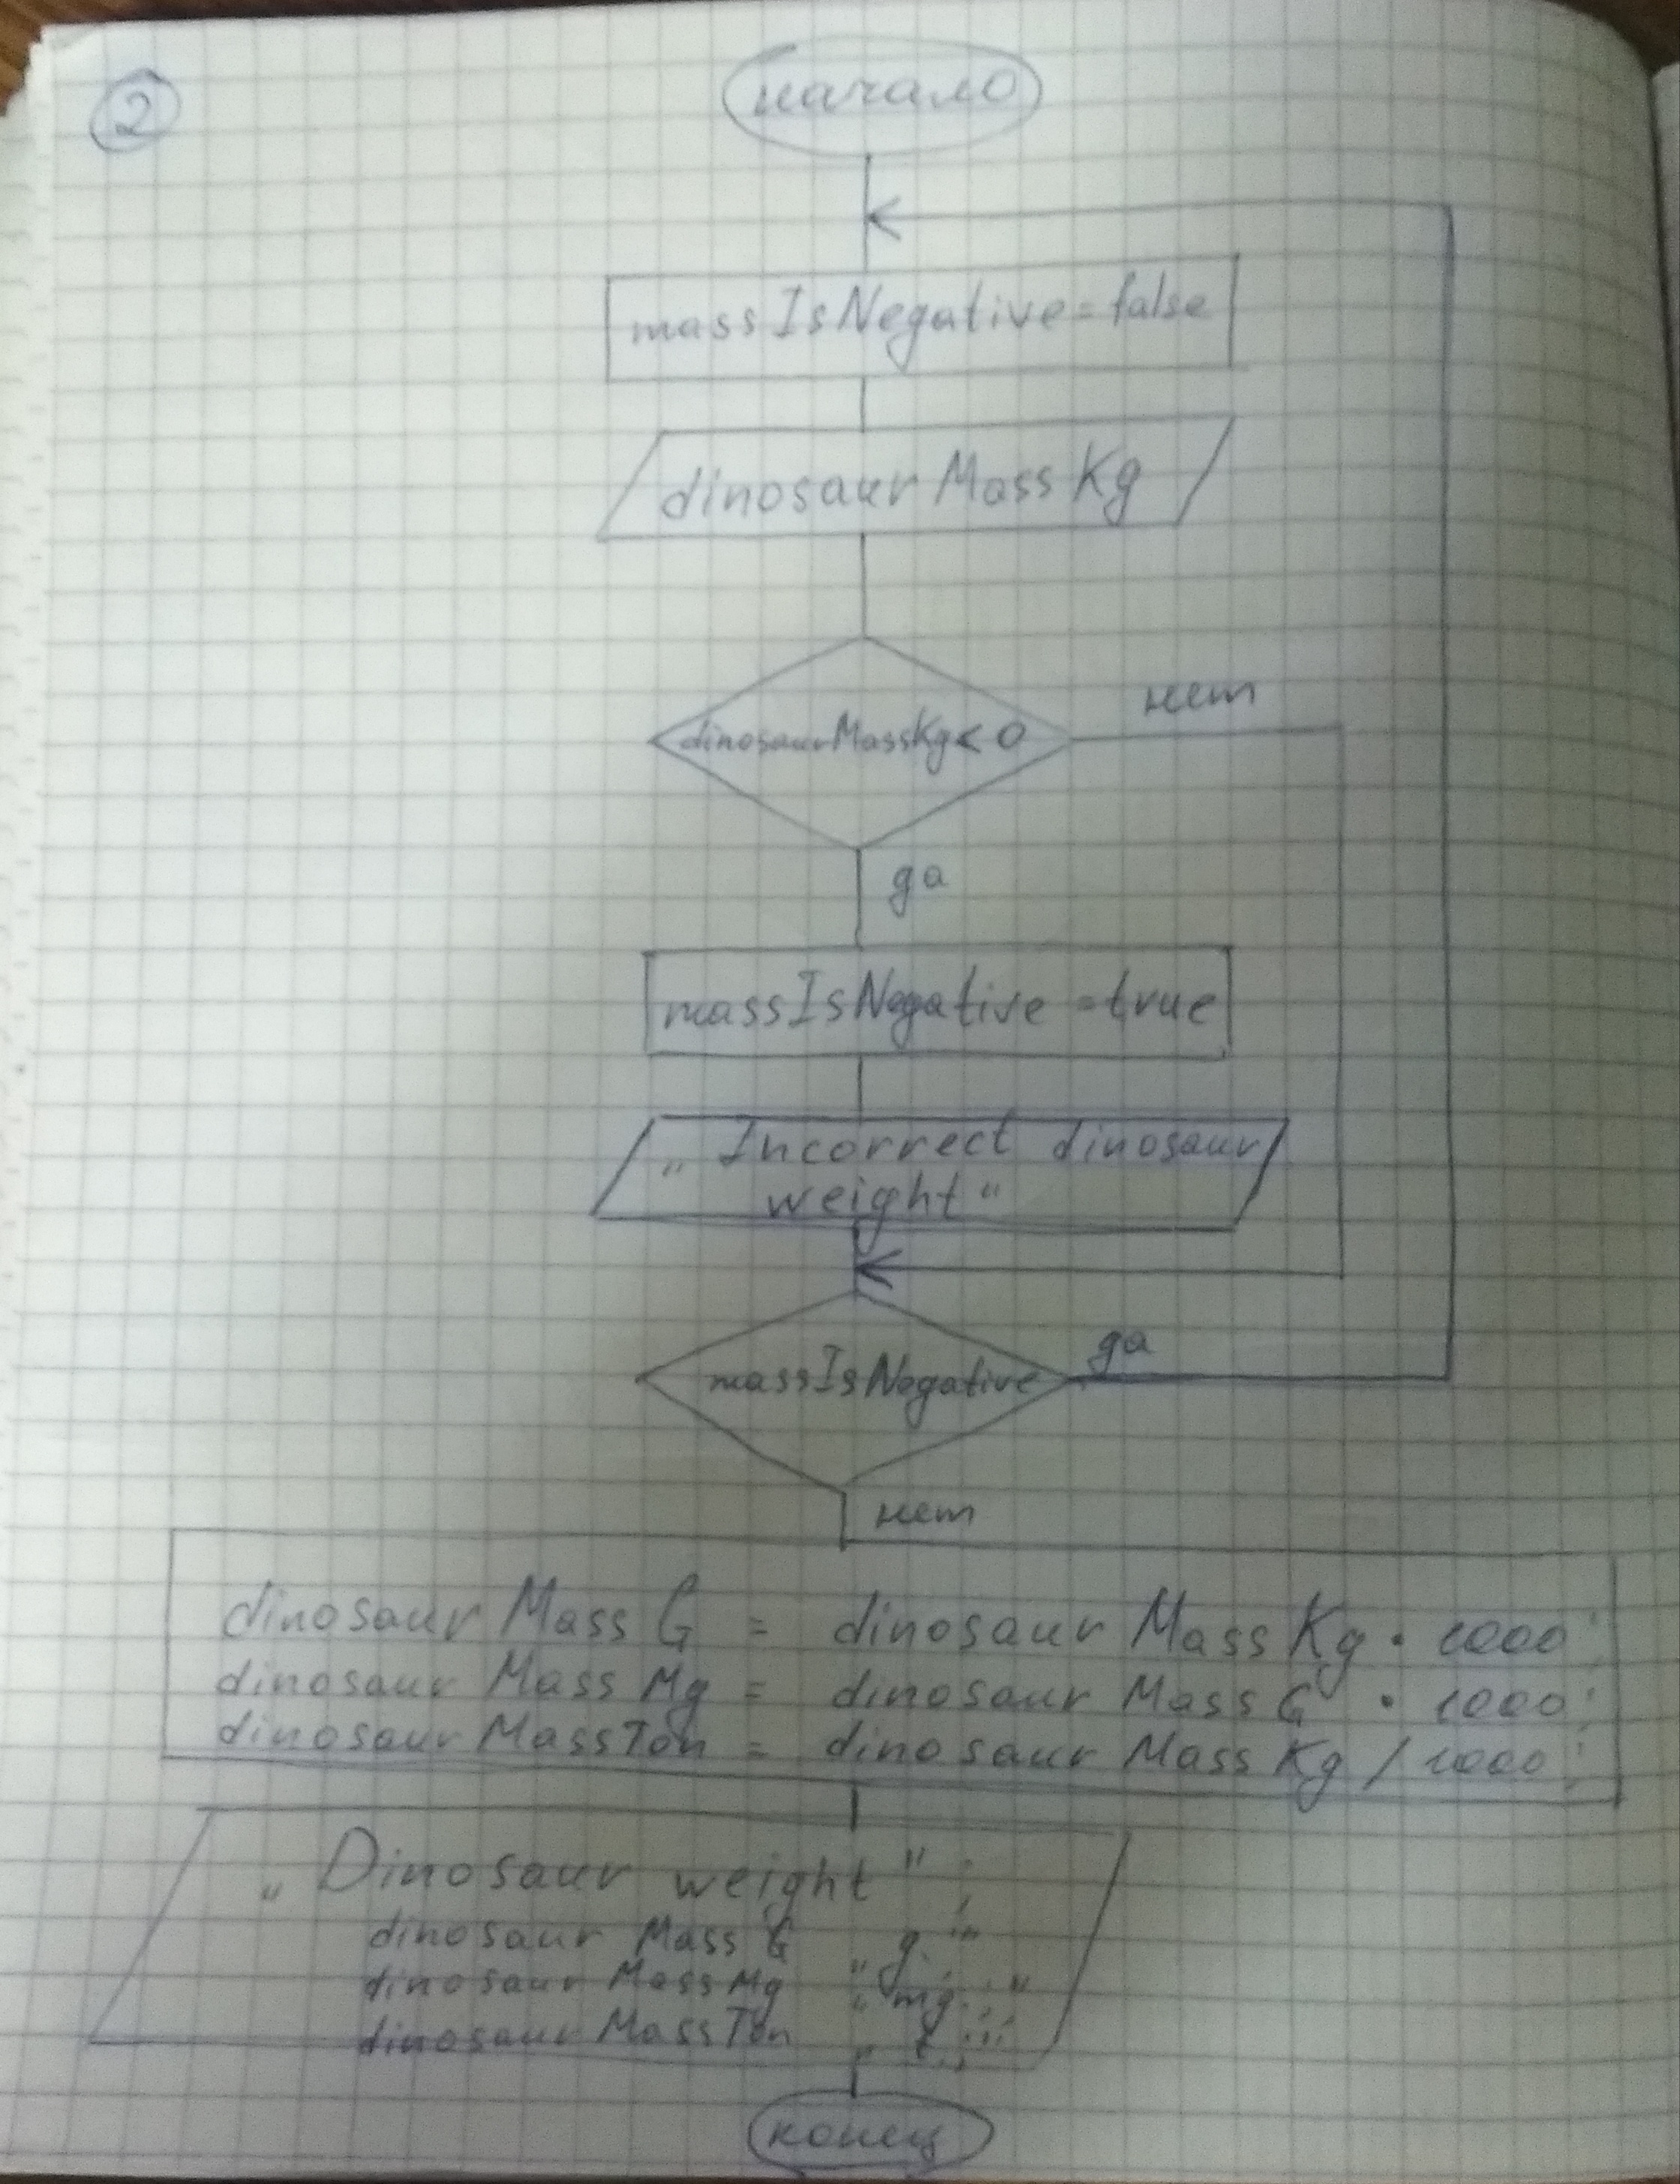 2
начало
massIsNegative = false
dinosaurMassKg
dinosaurMassKg < 0
нет
да
massIsNegative = true
„Incorrect dinosaur
weight“
massIsNegative
да
нет
dinosaurMassG = dinosaurMassKg · 1000;
dinosaurMassMg = dinosaurMassG · 1000;
dinosaurMassTon = dinosaurMassKg / 1000;
„Dinosaur weight“;
dinosaurMassG „g.“;
dinosaurMassMg „mg.“;
dinosaurMassTon „t.“;
конец